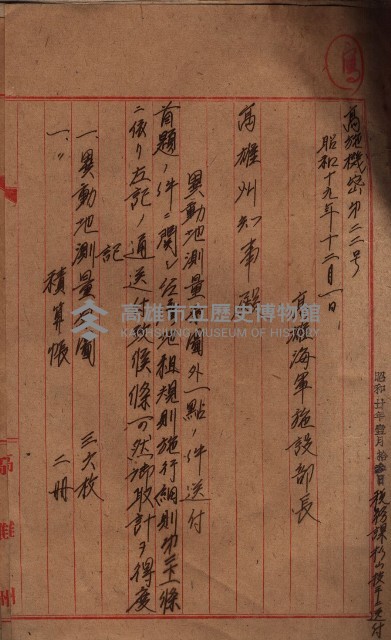 高施機密第二二号
昭和十九年十二月一日
高雄海軍施設部長
高雄州知事殿
異動地測量原圖外一點ノ件送付
首題ノ件ニ関シ台湾地租規則施行細則第二十一條
ニ依リ左記ノ通送付致候條可然御取計ヲ得度
記
一、異動地測量原圖 三六枚
一、〃 積算帳 二冊
昭和廿年壹月拾
税務課
送付
高雄州
高雄市立歷史博物館
KAOHSIUNG MUSEUM OF HISTORY